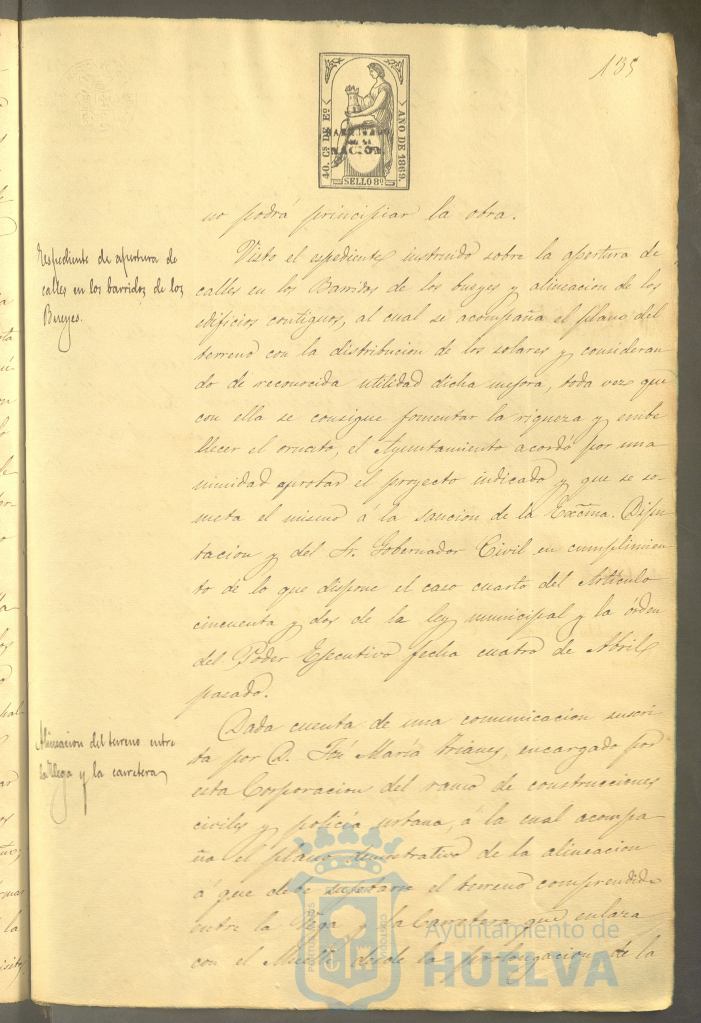 135
40. Cs. DE Eo.
AÑO DE 1869.
NACION.
SELLO 8º
no podrá principiar la obra.
Espediente de apertura de
calles en los barridos de los
Bueyes.
Visto el espediente instruido sobre la apertura de
calles en los Barridos de los bueyes y alineacion de los
edificios contiguos, al cual se acompaña el plano del
terreno con la distribucion de los solares y consideran
do de reconocida utilidad dicha mejora, toda vez que
con ella se consigue fomentar la riqueza y embe
llecer el ornato, el Ayuntamiento acordó por una
nimidad aprobar el proyecto indicado y que se so-
meta el mismo á la sancion de la Excma. Dipu
tacion y del Sr. Gobernador Civil en cumplimien
to de lo que dispone el caso cuarto del Artículo
cincuenta y dos de la ley municipal y la órden
del Poder Ejecutivo fecha cuatro de Abril
pasado.
Alineacion del terreno entre
la Vega y la carretera
Dada cuenta de una comunicacion suscri
ta por D. José María Brianes, encargado por
esta Corporacion del ramo de construcciones
civiles y policía urbana, á la cual acompa
ña el plano demostrativo de la alineacion
á que debe sujetarse el terreno comprendido
entre la Vega y la Carretera que enlaza
con el Muelle desde la prolongacion de la
Ayuntamiento de
HUELVA